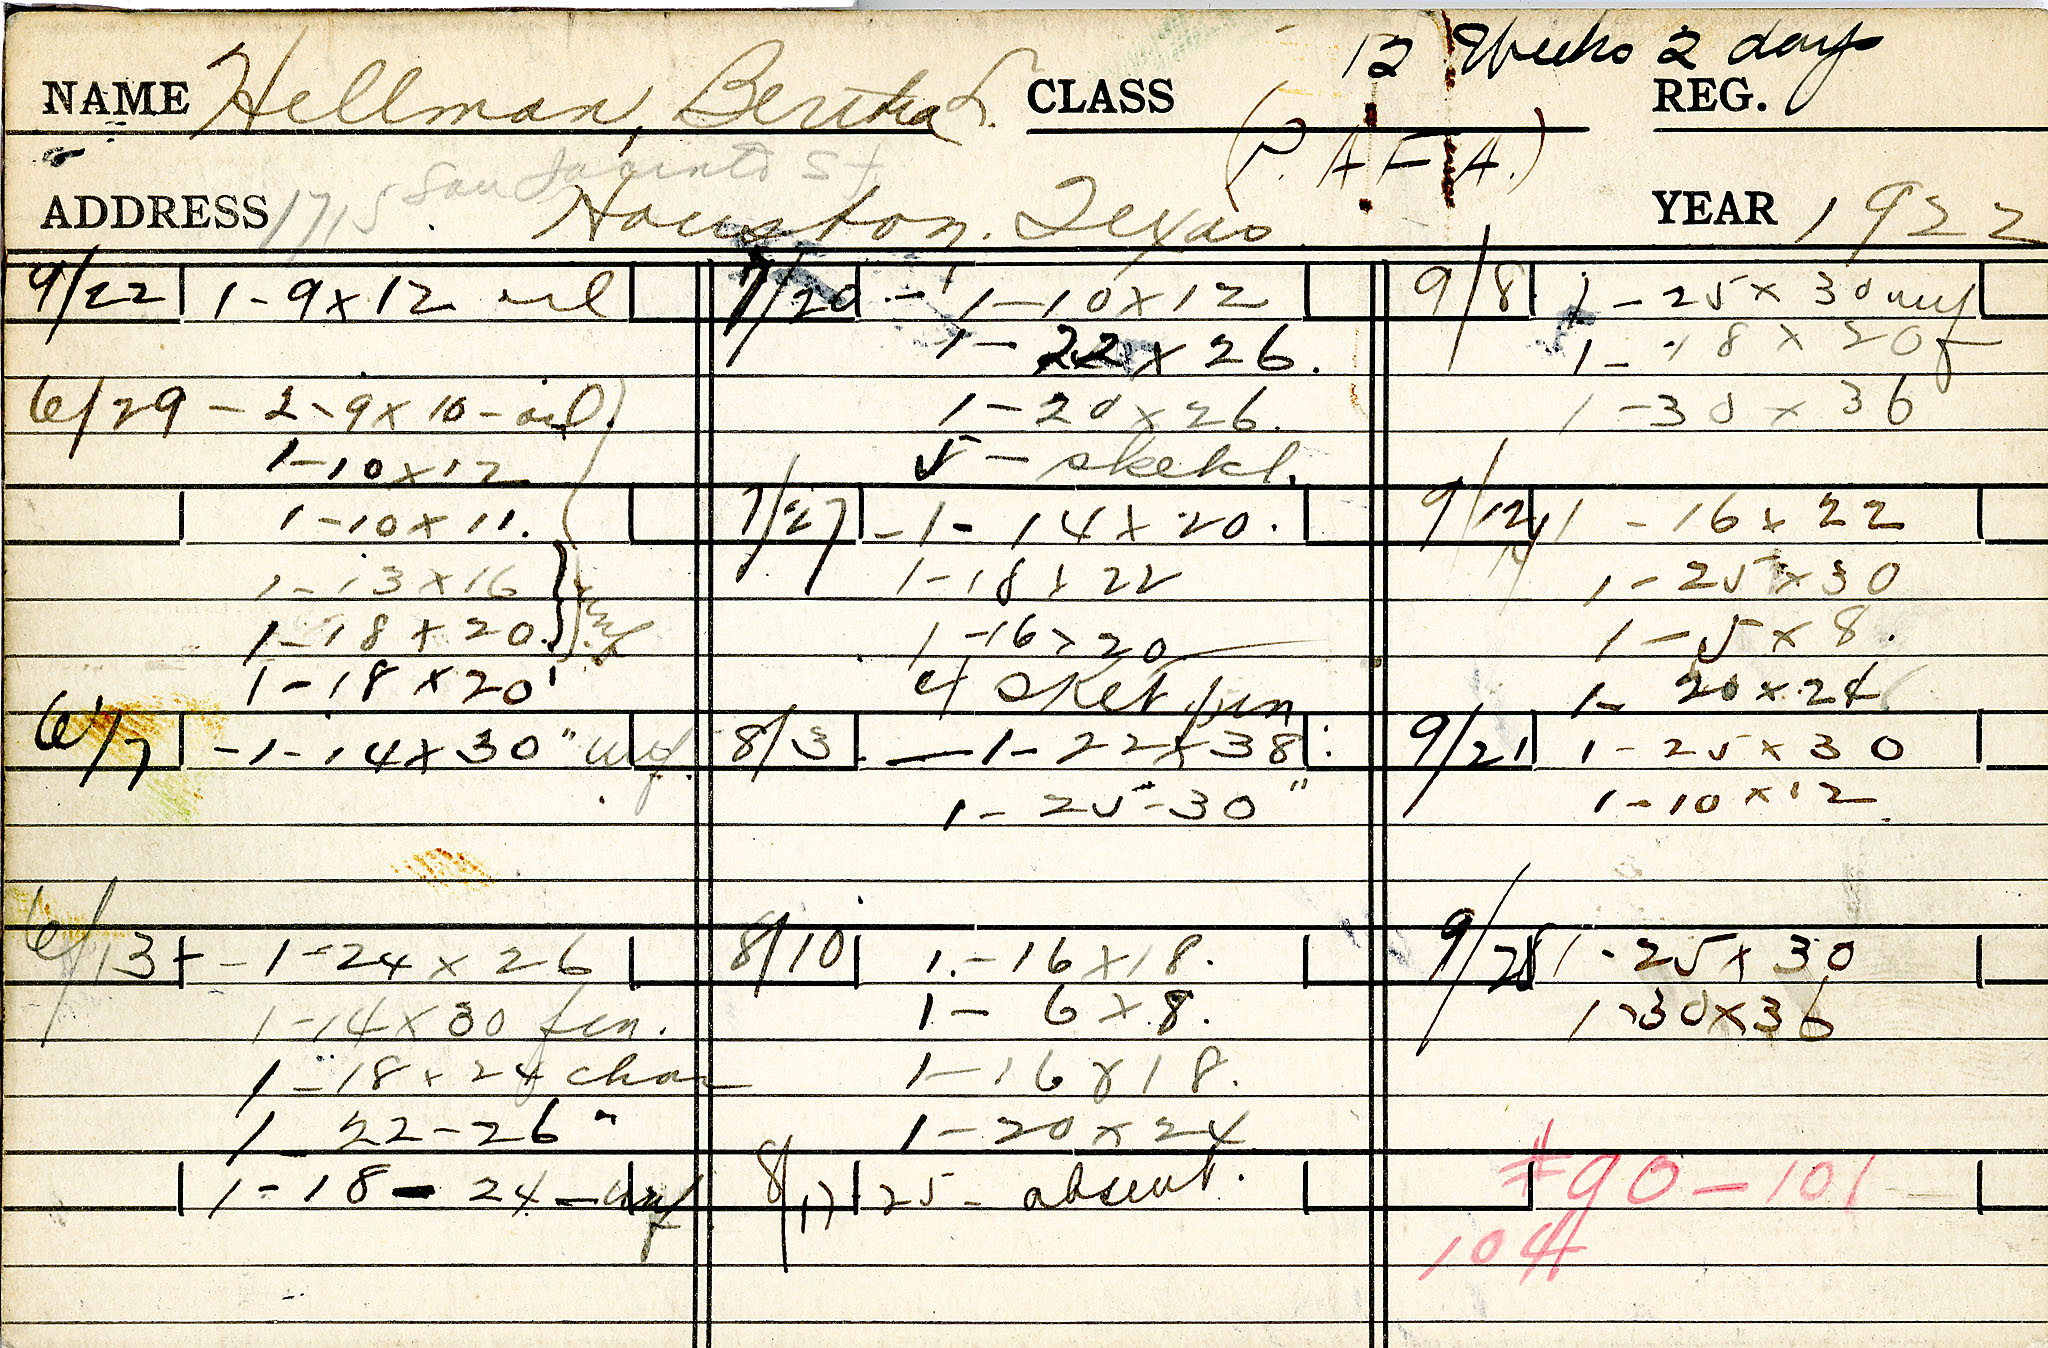 12 Weeks 2 days
NAME Hellman, Bertha L. CLASS REG.
(P.A.F.A.)
1715 San Jacinto St
ADDRESS Houston, Texas YEAR 1922
9/22 1-9x12 oil
6/29 - 2-9x10-oil
1-10x12
1-10x11.
1-13x16
1-18x20 unf
1-18x20"
6/7 -1-14x30" unf.
6/13 - 1-24x26
1-14x30 fin.
1-18x24 char
1 22-26 "
1-18-24-unf
7/20 - 1-10x12
1-22x26.
1-20x26.
5-sketch.
7/27 -1-14x20.
1-18x22
1-16x20
4 sket fin
8/3 -1-22x38
1-25-30"
8/10 1-16x18.
1-6x8.
1-16x18.
1-20x24
8/17 25- absent.
9/8 1-25x30 unf
1-18x20
1-30x36
9/12 1-16x22
14
1-25x30
1-5x8.
1-20x24
9/21 1-25x30
1-10x12.
9/28 1-25x30
1-30x36
#90-101
104